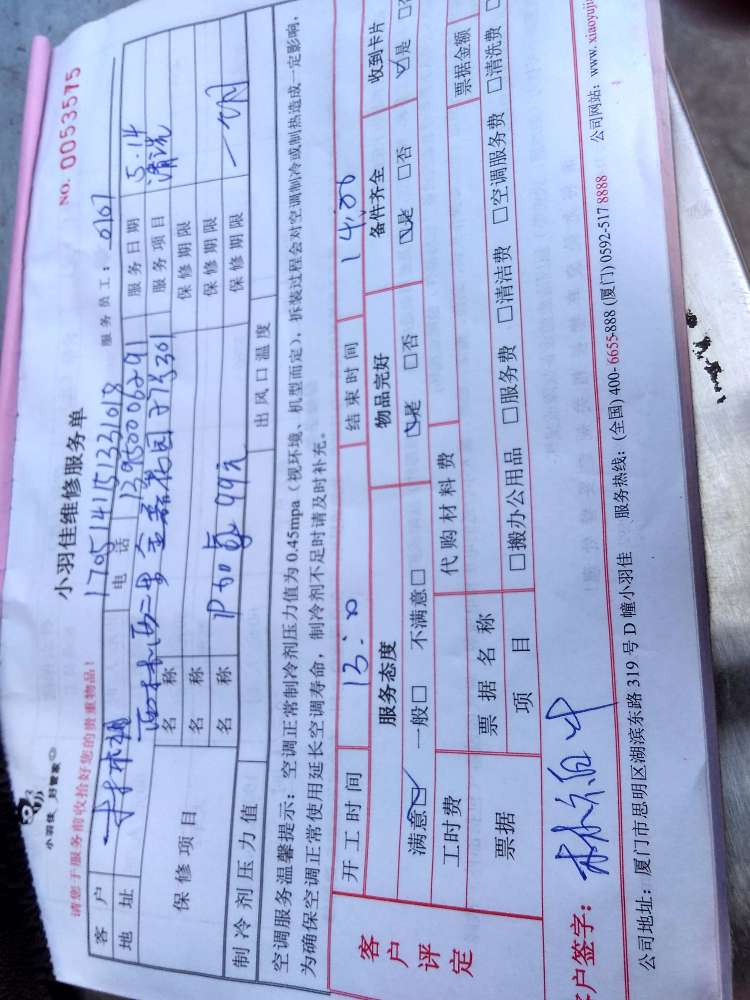 小羽佳 好管家
小羽佳维修服务单
NO. 0053575
请您于服务前收拾好您的贵重物品!
服务员工: 0107
客户 1705141151331018
电话 13950006291 服务日期 5.14
地址 金磊花园 301 服务项目 清洗
保修项目
名称 保修期限
名称 保修期限
名称 99元 保修期限 一个月
制冷剂压力值 出风口温度
空调服务温馨提示: 空调正常制冷剂压力值为0.45mpa(视环境、机型而定), 拆装过程会对空调制冷或制热造成一定影响,
为确保空调正常使用延长空调寿命, 制冷剂不足时请及时补充。
客户评定
开工时间 13:00 结束时间 14:00
服务态度 物品完好 备件齐全 收到卡片
满意☑ 一般□ 不满意□ ☑是 □否 ☑是 □否 ☑是
工时费 代购材料费 票据金额
票据 票据名称
项目 □搬办公用品 □服务费 □清洁费 □空调服务费 □清洗费
户签字:
公司地址: 厦门市思明区湖滨东路319号D幢小羽佳 服务热线: (全国)400-6655-888 (厦门)0592-517 8888 公司网站: www.xiaoyuji